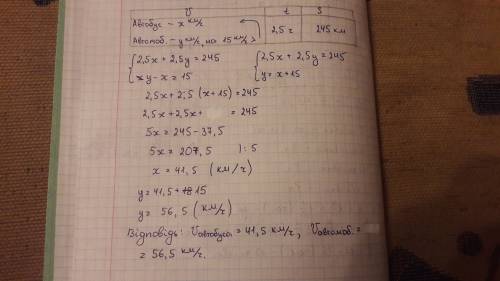 V t S
Автобус – x км/г
Автомоб. – y км/г, на 15 км/г > 2,5 г 245 км
{ 2,5x + 2,5y = 245 { 2,5x + 2,5y = 245
{ y – x = 15 { y = x + 15
2,5x + 2,5 (x + 15) = 245
2,5x + 2,5x + = 245
5x = 245 – 37,5
5x = 207,5 | : 5
x = 41,5 (км/г)
y = 41,5 + 15
y = 56,5 (км/г)
Відповідь: Vавтобуса = 41,5 км/г, Vавтомоб. =
= 56,5 км/г.